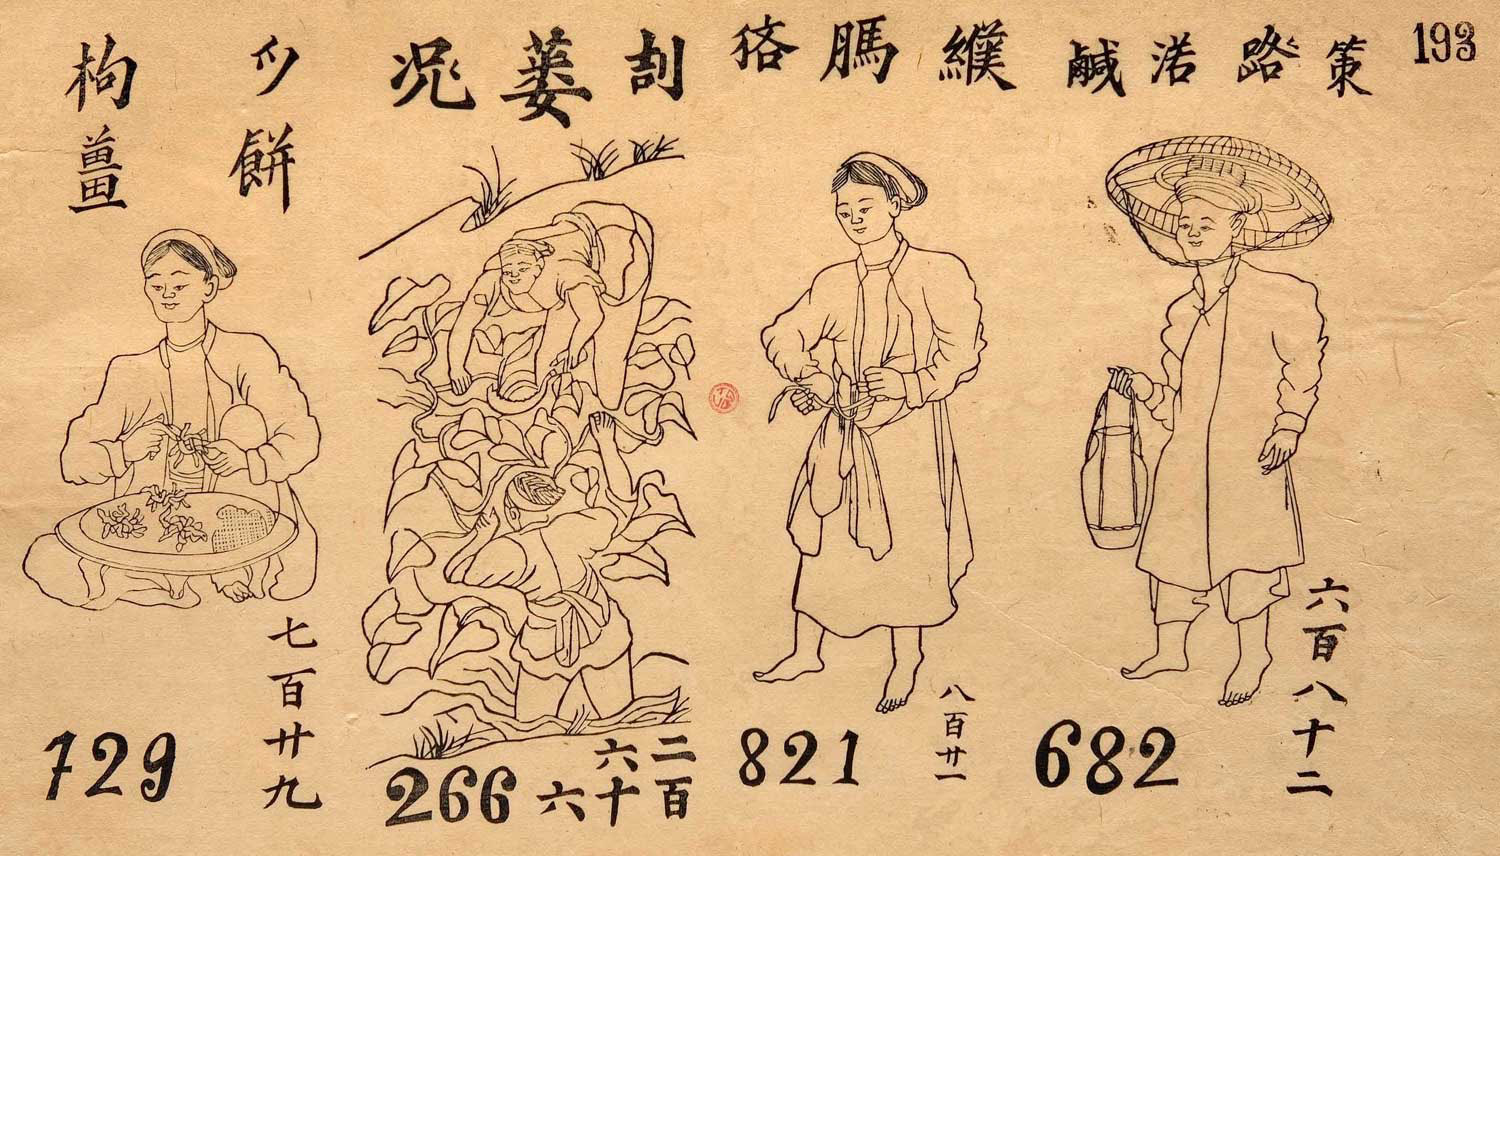 193
策 路 渃 鹹
六百八十二
682
纀 䐁 𢂜
八百廿一
821
刮 蒌 况
二百
六十
六
266
餅
枸薑
七百廿九
729